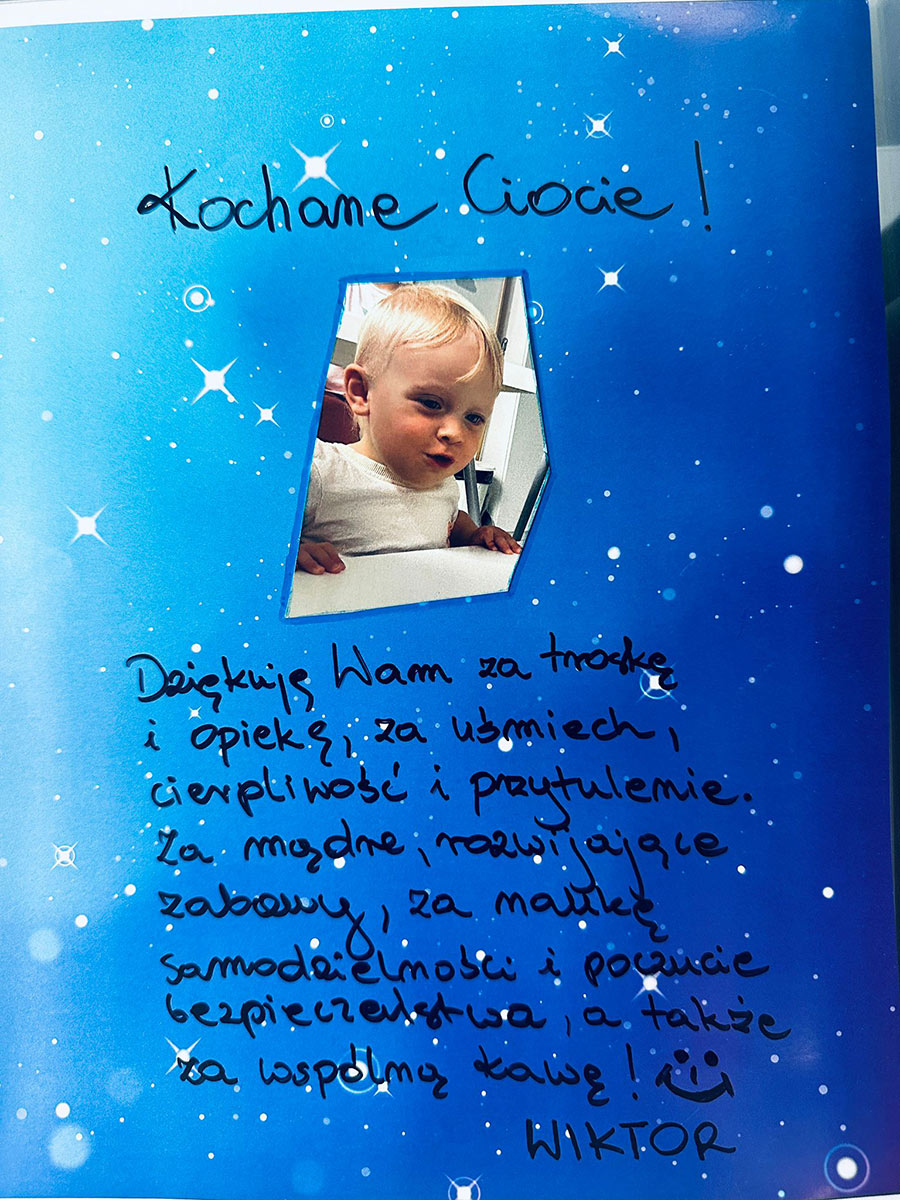 Kochane Ciocie!
Dziękuję Wam za troskę
i opiekę, za uśmiech,
cierpliwość i przytulenie.
Za mądre, rozwijające
zabawy, za naukę
samodzielności i poczucie
bezpieczeństwa, a także
za wspólną kawę!
WIKTOR